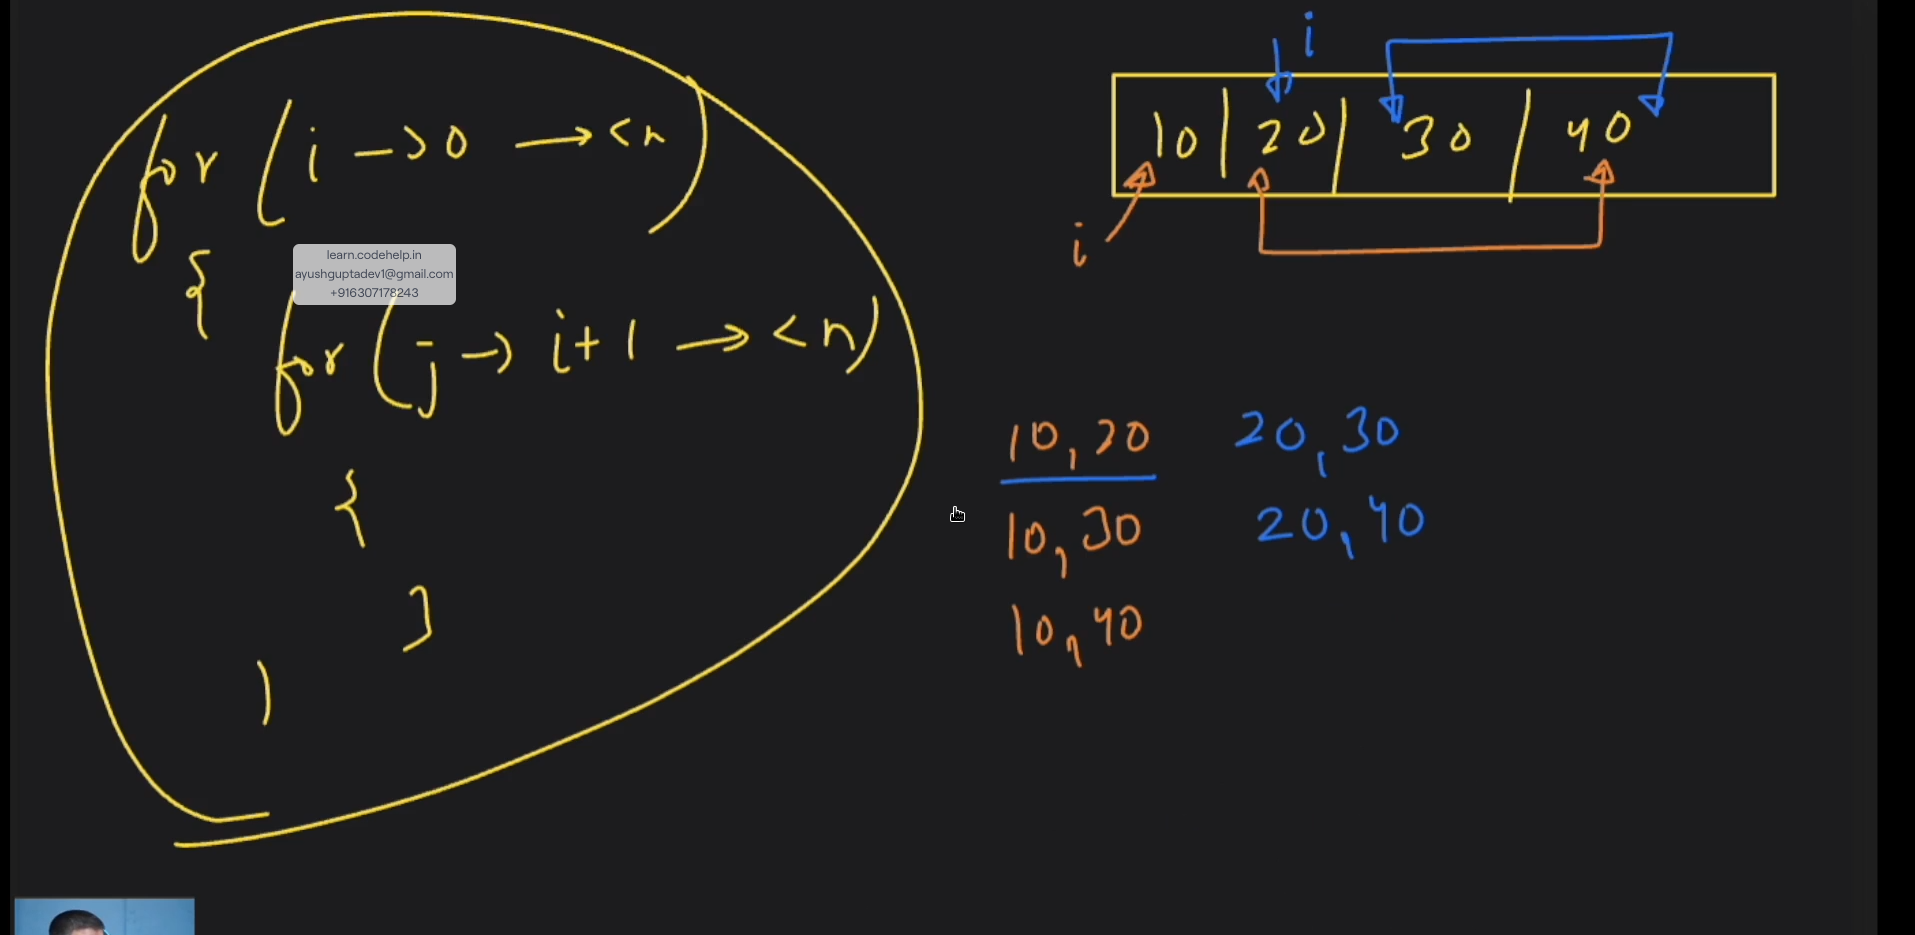 for (i → 0 → < n)
{
learn.codehelp.in
ayushguptadev1@gmail.com
+916307178243
for (j → i+1 → < n)
{
}
)
i
10 | 20 | 30 | 40
i
10, 20
10, 30
10, 40
20, 30
20, 40